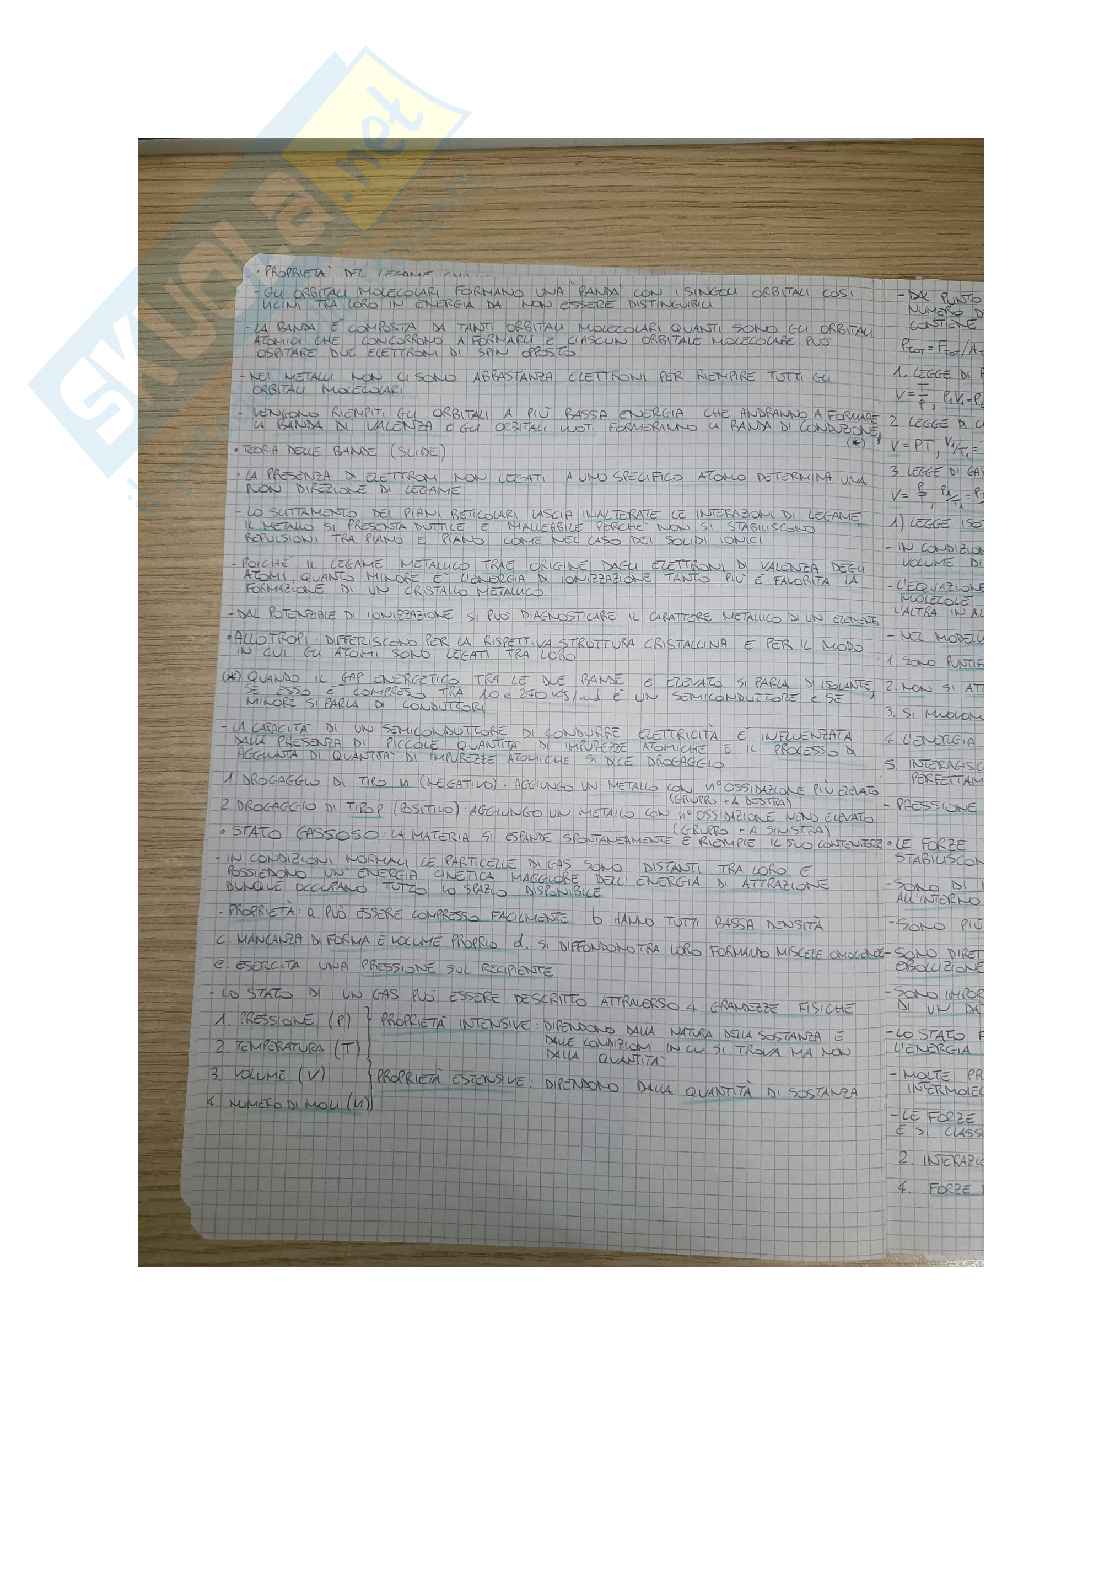 SKUOLA.net
• PROPRIETA' DEL LEGAME
GLI ORBITALI MOLECOLARI FORMANO UNA "BANDA" CON I SINGOLI ORBITALI COSI'
VICINI TRA LORO IN ENERGIA DA NON ESSERE DISTINGUIBILI
- LA BANDA E' COMPOSTA DA TANTI ORBITALI MOLECOLARI QUANTI SONO GLI ORBITALI
ATOMICI CHE CONCORRONO A FORMARLI E CIASCUN ORBITALE MOLECOLARE PUO'
OSPITARE DUE ELETTRONI DI SPIN OPOSTO
- NEI METALLI NON CI SONO ABBASTANZA ELETTRONI PER RIEMPIRE TUTTI GLI
ORBITALI MOLECOLARI
- VENGONO RIEMPITI GLI ORBITALI A PIU' BASSA ENERGIA CHE ANDRANNO A FORMARE
LA BANDA DI VALENZA E GLI ORBITALI VUOTI FORMERANNO LA BANDA DI CONDUZIONE
(*)
• TEORIA DELLE BANDE (SLIDE)
- LA PRESENZA DI ELETTRONI NON LEGATI A UNO SPECIFICO ATOMO DETERMINA UNA
NON DIREZIONE DI LEGAME
- LO SLITTAMENTO DEI PIANI RETICOLARI LASCIA INALTERATE LE INTERAZIONI DI LEGAME
IL METALLO SI PRESENTA DUTTILE E MALLEABILE PERCHE' NON SI STABILISCONO
REPULSIONI TRA PIANO E PIANO COME NEL CASO DEI SOLIDI IONICI
- POICHE' IL LEGAME METALLICO TRAE ORIGINE DAGLI ELETTRONI DI VALENZA DEGLI
ATOMI QUANTO MINORE E' L'ENERGIA DI IONIZZAZIONE TANTO PIU' E' FAVORITA LA
FORMAZIONE DI UN CRISTALLO METALLICO
- DAL POTENZIALE DI IONIZZAZIONE SI PUO' DIAGNOSTICARE IL CARATTERE METALLICO DI UN ELEMENTE
• ALLOTROPI: DIFFERISCONO PER LA RISPETTIVA STRUTTURA CRISTALLINA E PER IL MODO
IN CUI GLI ATOMI SONO LEGATI TRA LORO
(*) QUANDO IL GAP ENERGETICO TRA LE DUE BANDE E' ELEVATO SI PARLA DI ISOLANTE,
SE ESSO E' COMPRESO TRA 10 E 250 KJ/mol E' UN SEMICONDUTTORE E SE
MINORE SI PARLA DI CONDUTTORI
- LA CAPACITA' DI UN SEMICONDUTTORE DI CONDURRE ELETTRICITA' E' INFLUENZATA
DALLA PRESENZA DI PICCOLE QUANTITA' DI IMPUREZZE ATOMICHE E IL PROCESSO DI
AGGIUNTA DI QUANTITA' DI IMPUREZZE ATOMICHE SI DICE DROGAGGIO
1. DROGAGGIO DI TIPO N (NEGATIVO): AGGIUNGO UN METALLO CON N° OSSIDAZIONE PIU' ELEVATO
(GRUPPO + A DESTRA)
2. DROGAGGIO DI TIPO P (POSITIVO): AGGIUNGO UN METALLO CON N° OSSIDAZIONE MENO ELEVATO
(GRUPPO + A SINISTRA)
• STATO GASSOSO: LA MATERIA SI ESPANDE SPONTANEAMENTE E RIEMPIE IL SUO CONTENITORE
- IN CONDIZIONI NORMALI LE PARTICELLE DI GAS SONO DISTANTI TRA LORO E
POSSIEDONO UN'ENERGIA CINETICA MAGGIORE DELL'ENERGIA DI ATTRAZIONE
DUNQUE OCCUPANO TUTTO LO SPAZIO DISPONIBILE
- PROPRIETA': a. PUO' ESSERE COMPRESSO FACILMENTE b. HANNO TUTTI BASSA DENSITA'
c. MANCANZA DI FORMA E VOLUME PROPRIO d. SI DIFFONDONO TRA LORO FORMANDO MISCELE OMOGENEE
e. ESERCITA UNA PRESSIONE SUL RECIPIENTE
- LO STATO DI UN GAS PUO' ESSERE DESCRITTO ATTRAVERSO 4 GRANDEZZE FISICHE
1. PRESSIONE (P) } PROPRIETA' INTENSIVE: DIPENDONO DALLA NATURA DELLA SOSTANZA E
DALLE CONDIZIONI IN CUI SI TROVA MA NON
2. TEMPERATURA (T)
DALLA QUANTITA'
3. VOLUME (V) } PROPRIETA' ESTENSIVE: DIPENDONO DALLA QUANTITA' DI SOSTANZA
4. NUMERO DI MOLI (N)
- DAL PUNTO
NUMERO D
CONTIENE
Ptot = Ftot/A
1. LEGGE DI
2. LEGGE DI
3. LEGGE DI GA
1) LEGGE ISO
- IN CONDIZION
VOLUME DI
- L'EQUAZIONE
MOLECOLE
L'ALTRA IN
- NEL MODELLO
1. SONO PUNTIF
2. NON SI ATT
3. SI MUOVON
4. L'ENERGIA
5. INTERAGISC
PERFETTAM
- PRESSIONE
• LE FORZE
STABILISCON
- SONO DI
ALL'INTERNO
- SONO PIU'
- SONO DIRET
EBOLLIZIONE
- SONO IMPOR
DI UN DA
- LO STATO F
L'ENERGIA
- MOLTE PR
INTERMOLEC
- LE FORZE
E SI CLASS
2. INTERAZIO
4. FORZE